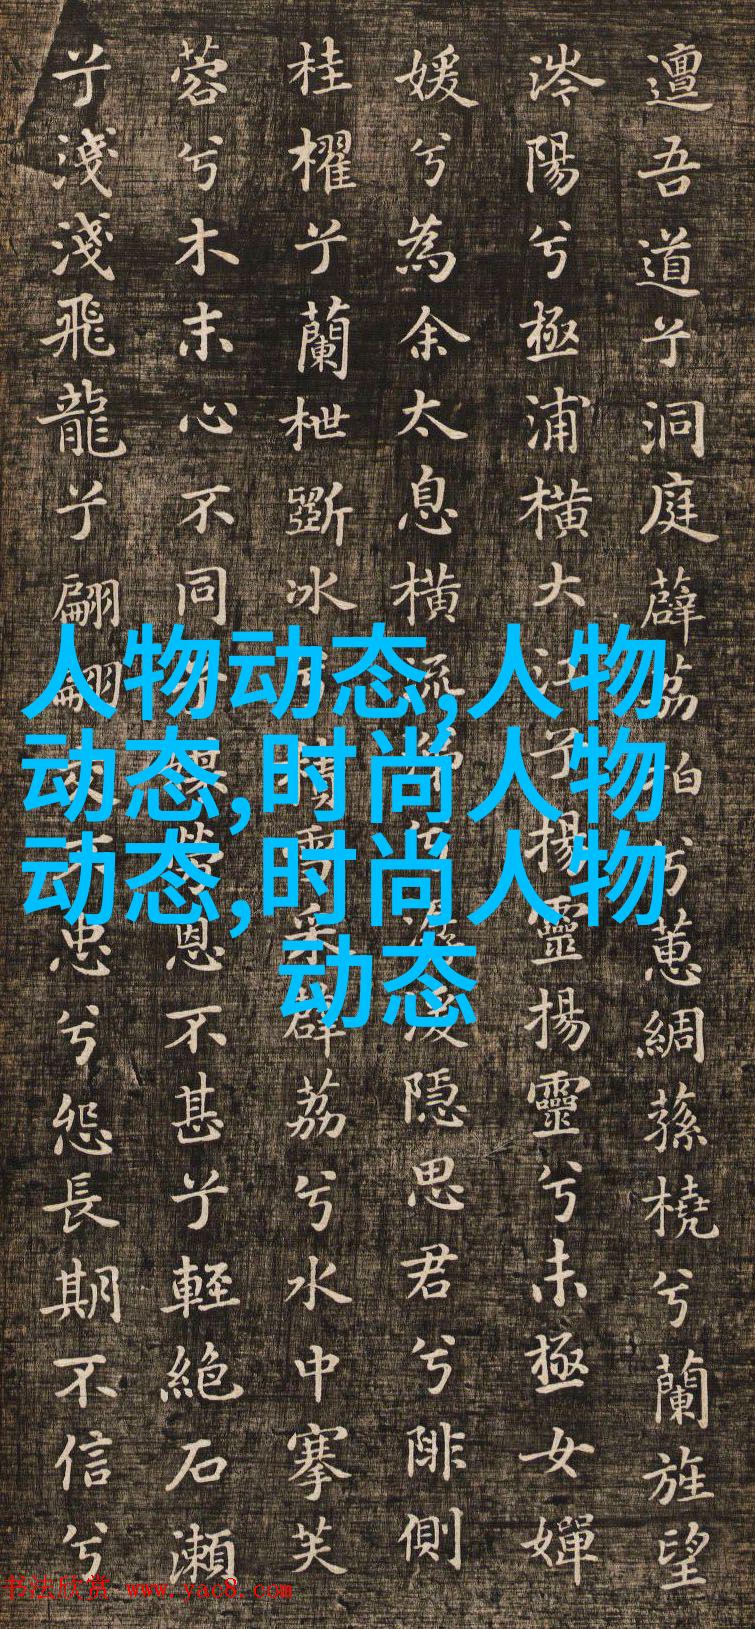 邅吾道兮洞庭薜荔拍兮蕙綢蓀橈兮蘭旌望
涔陽兮極浦橫大江兮揚靈揚靈兮未極女嬋
媛兮為余太息橫流涕兮潺湲隱思君兮陫側
桂櫂兮蘭枻斲冰兮積雪采薜荔兮水中搴芙
蓉兮木末心不同兮媒勞恩不甚兮輕絕石瀨
兮淺淺飛龍兮翩翩交不忠兮怨長期不信兮
人物动态,人物
动态,时尚人物
动态,时尚人物
动态
书法欣赏 www.yac8.com